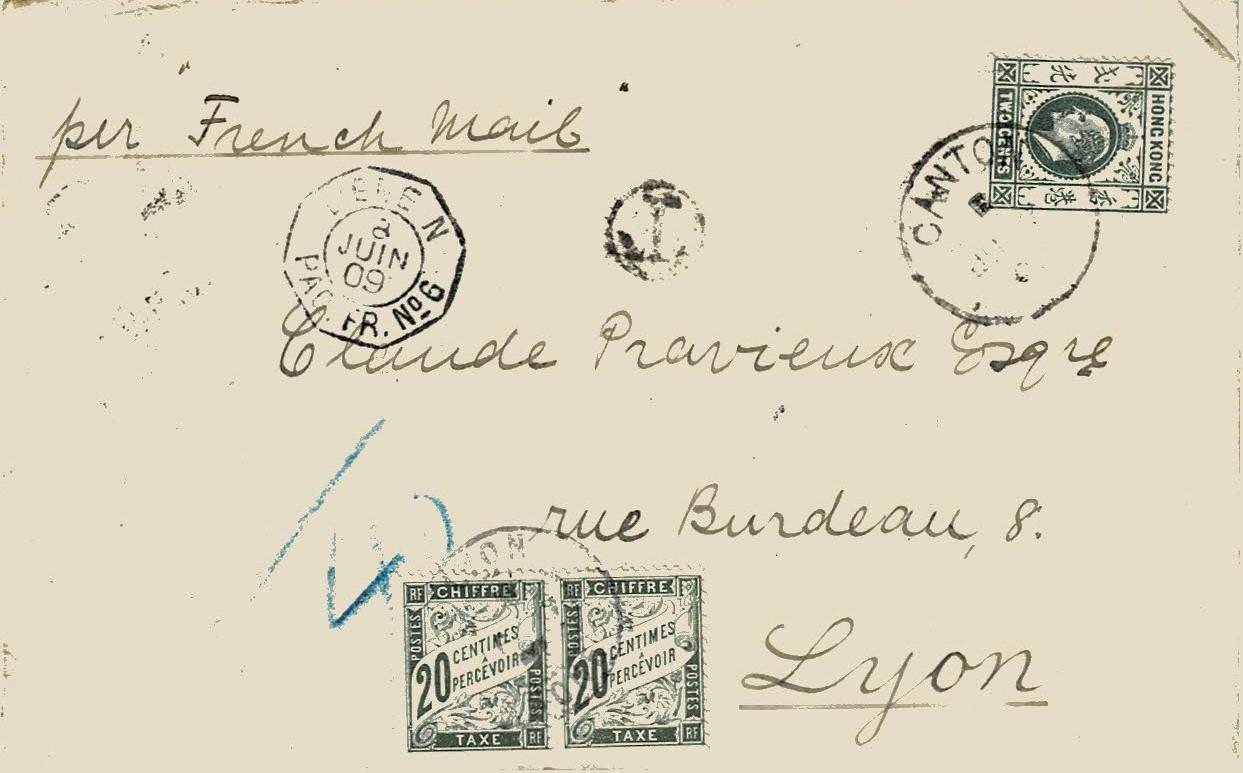 per "French Mail"
弍先
HONG KONG
TWO CENTS
香港
CANTON
LIGNE N
2
JUIN
09
PAQ. FR. Nº 6
T
Claude Pravieux Esqre
rue Burdeau, 8.
Lyon
LYON
RF CHIFFRE
POSTES
20 CENTIMES
À
PERCEVOIR
POSTES
TAXE RF
RF CHIFFRE
POSTES
20 CENTIMES
À
PERCEVOIR
POSTES
TAXE RF